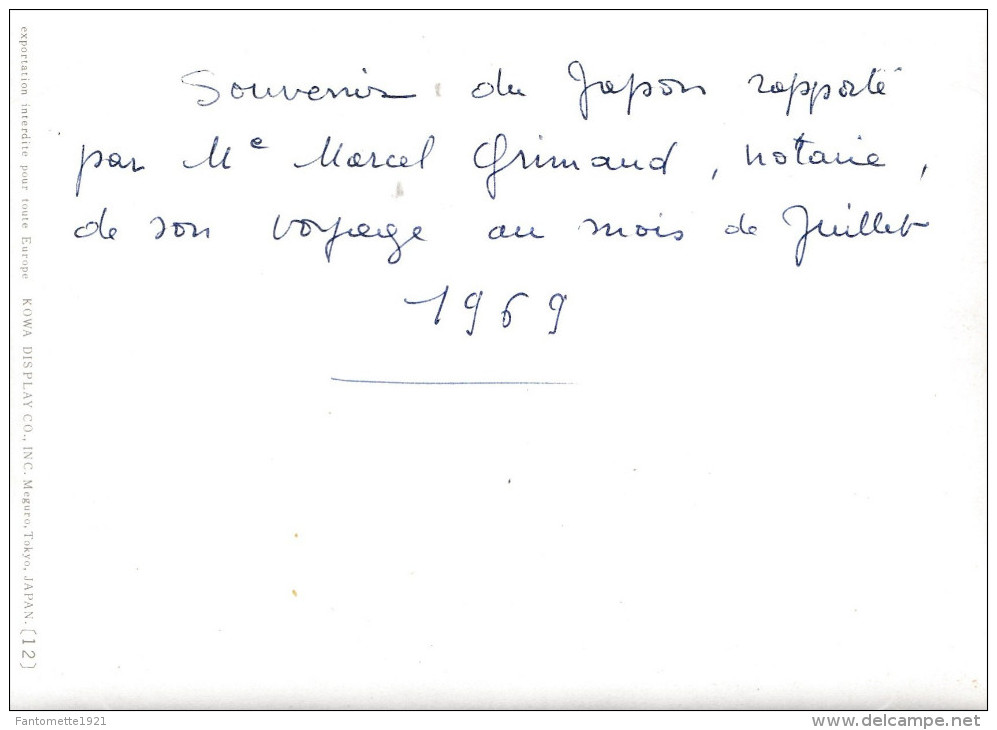 Souvenir du Japon rapporté
par Me Marcel Grimaud, notaire,
de son voyage au mois de Juillet
1969
exportation interdite pour toute Europe KOWA DISPLAY CO., INC. Meguro, Tokyo, JAPAN. [12]
Fantomette1921
www.delcampe.net